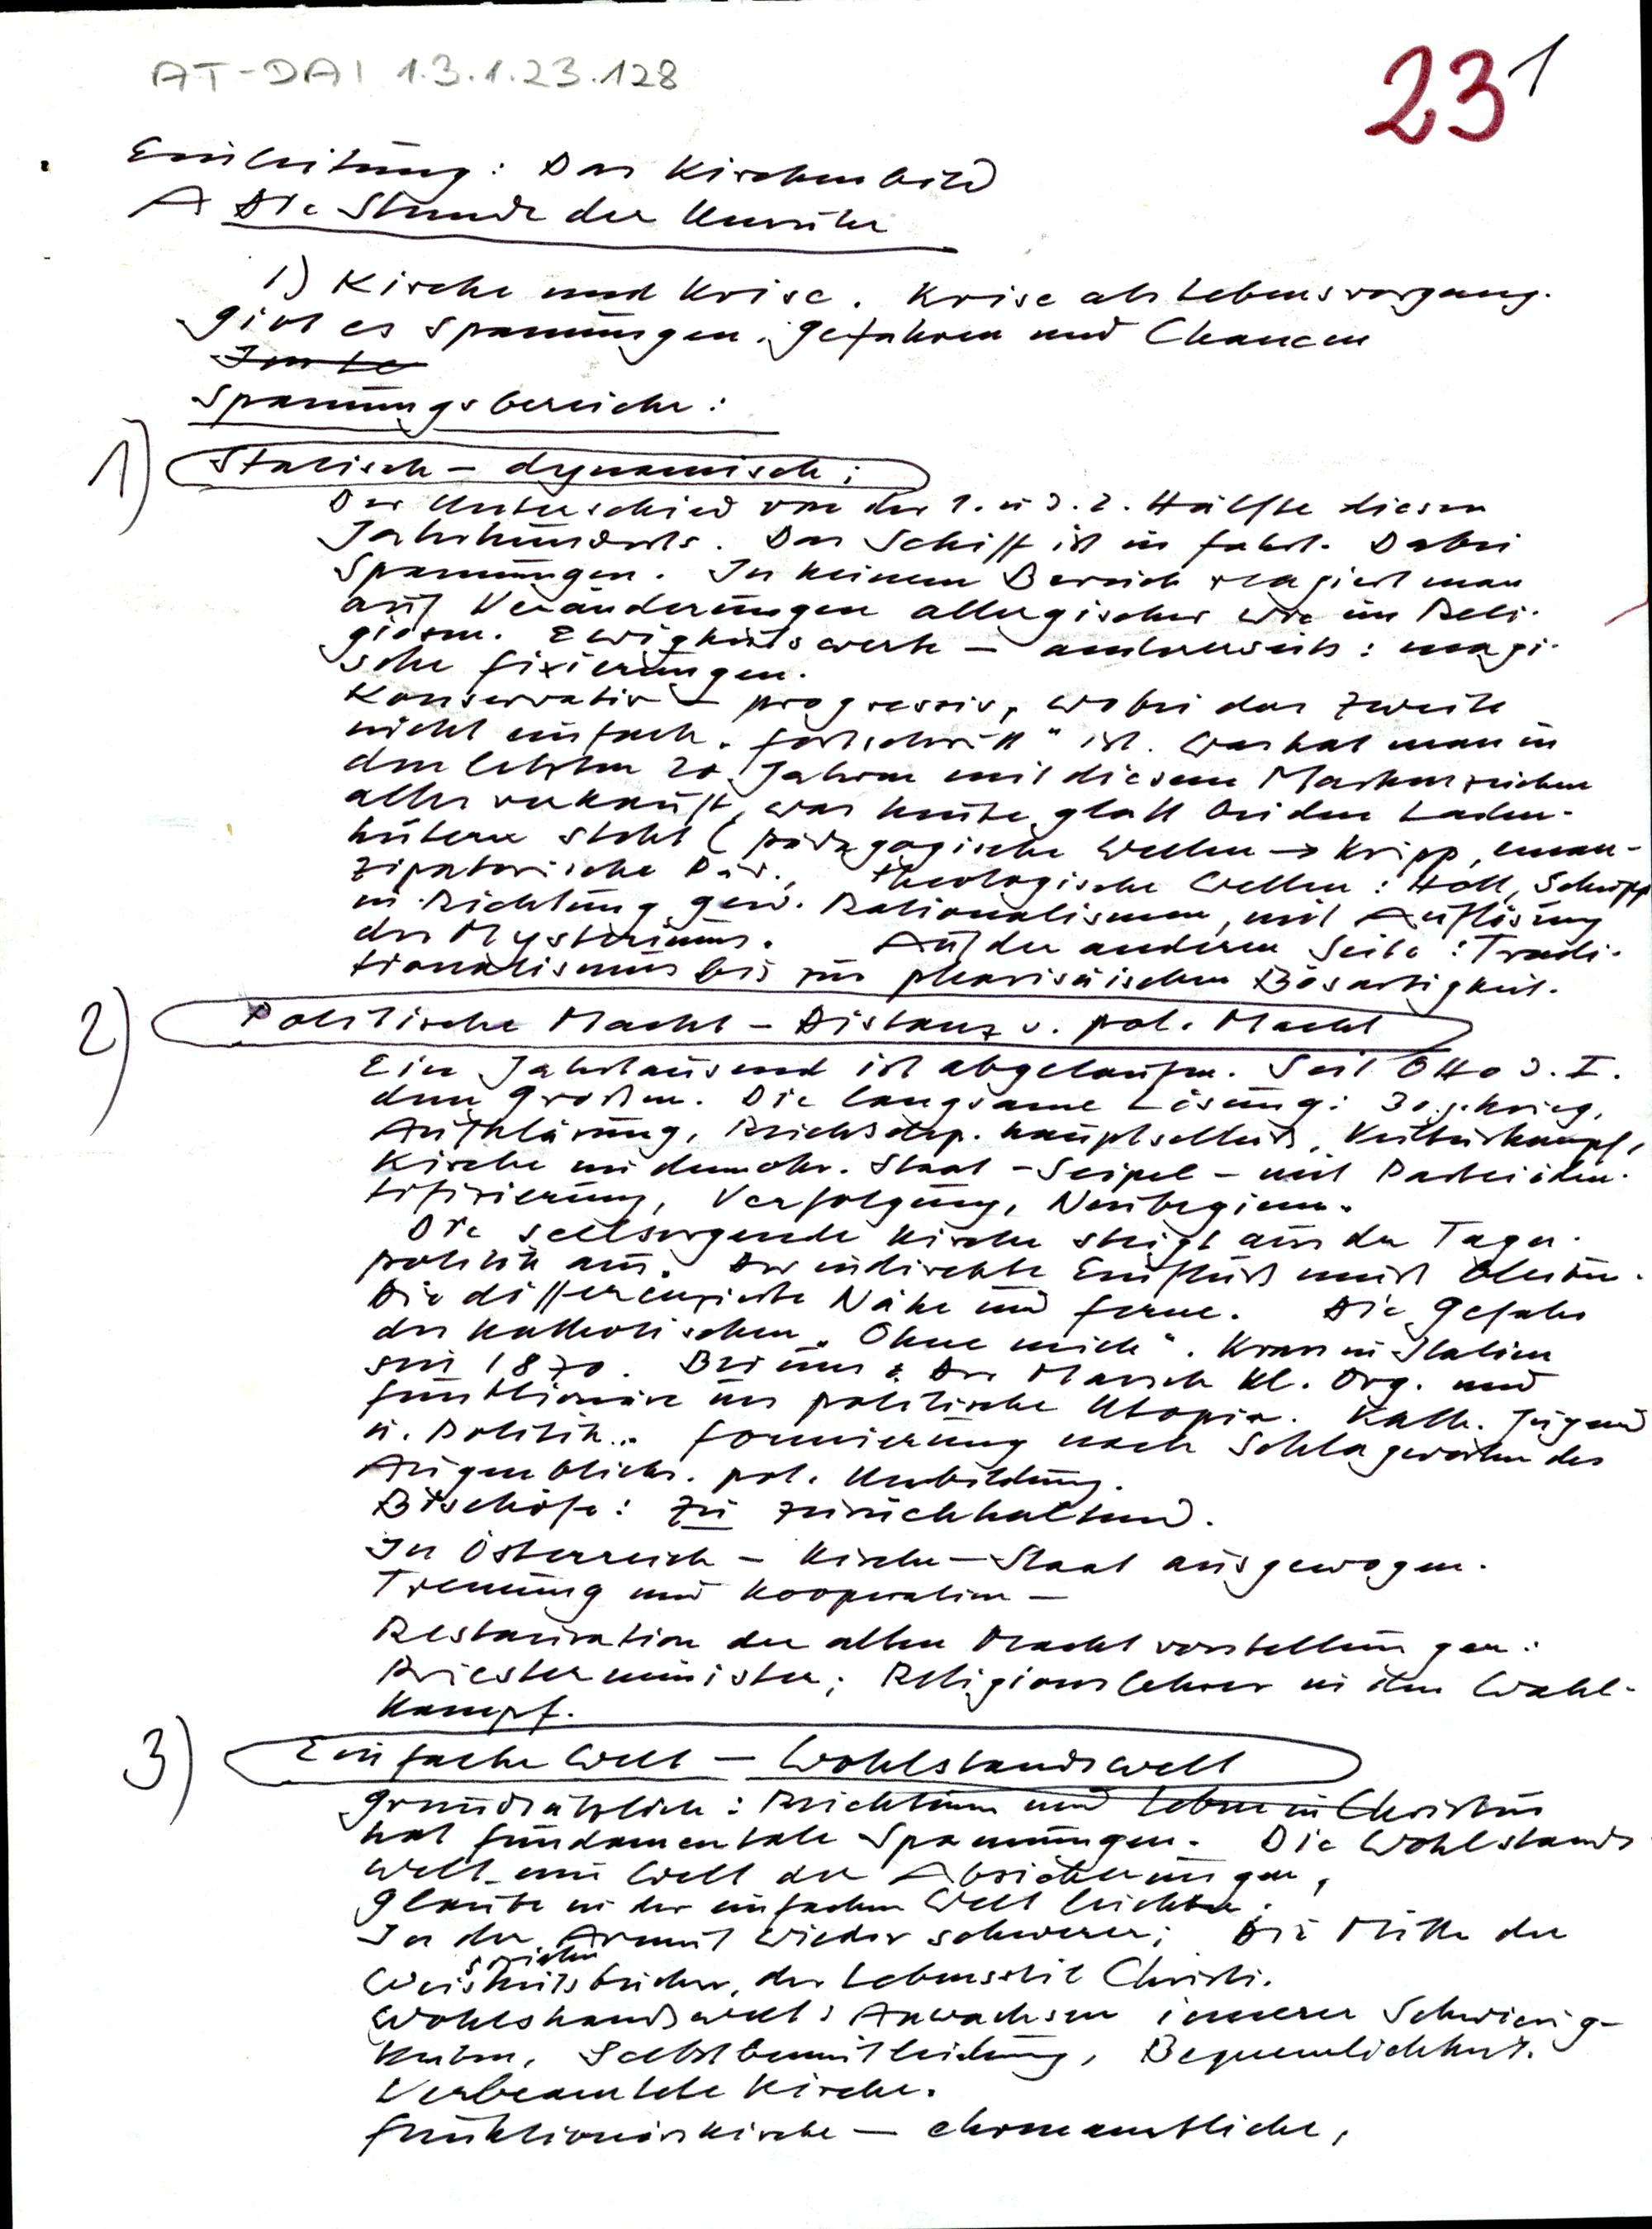 AT-DAI 1.3.1.23.128
23 1
Einleitung: Das Kirchenbild
A Die Stunde der Unruhe
1) Kirche und Krise. Krise als Lebensvorgang.
gibt es Spannungen. Gefahren und Chancen
Spannungsbereiche:
1) Statisch - dynamisch:
Der Unterschied von der 1. u d. 2. Hälfte dieses
Jahrhunderts. Das Schiff ist in Fahrt. Dabei
Spannungen. In keinem Bereich reagiert man
auf Veränderungen allergischer wie im Reli-
giösen. Ewigkeitswerte - andrerseits: magi-
sche Fixierungen.
Konservativ - progressiv, wobei das Zweite
nicht einfach „Fortschritt" ist. Was hat man in
den letzten 20 Jahren mit diesem Markenzeichen
alles verkauft, was heute glatt bei den Laden-
hütern steht (pädagogische Wellen → Kripp, eman-
zipatorische Päd., theologische Wellen: Holl, Schupp
in Richtung gew. Rationalismen, mit Auflösung
des Mysteriums. Auf der anderen Seite: Tradi-
tionalismus bis zur pharisäischen Bösartigkeit.
2) Politische Macht - Distanz v. pol. Macht
Ein Jahrtausend ist abgelaufen. Seit Otto d. I.
dem Großen. Die langsame Lösung: 30 j. Krieg,
Aufklärung, Reichsdep. hauptschluß, Kulturkampf,
Kirche im demokr. Staat - Seipel - mit Parteiiden-
tifizierung, Verfolgung, Neubeginn.
Die seelsorgende Kirche steigt aus der Tages-
politik aus. Der indirekte Einfluß muß bleiben.
Die differenzierte Nähe und Ferne. Die Gefahr
des katholischen „Ohne mich". Krass in Italien
seit 1870. Bei uns: Der Marsch kl. Org. und
Funktionäre ins politische Utopia. Kath. Jugend
u. Politik. Formierung nach Schlagworten des
Augenblicks. pol. Unbildung.
Bischöfe: zu zurückhaltend.
In Österreich - Kirche - Staat ausgewogen.
Trennung und Kooperation -
Restauration der alten Machtvorstellungen:
Priesterminister; Religionslehrer in den Wahl-
kampf.
3) Einfache Welt - Wohlstandswelt
Grundsätzlich: Reichtum und Leben in Christus
hat fundamentale Spannungen. Die Wohlstands-
welt - eine Welt der Absicherungen,
Glaube in der einfachen Welt leichter;
In der Armut wieder schwerer; Die Mitte der
Weisheitsbücher, der Lebensstil Christi.
Wohlstandswelt: Anwachsen innerer Schwierig-
keiten, Selbstbemitleidung, Bequemlichkeit.
Verbeamtete Kirche.
Funktionärskirche - ehrenamtliche,